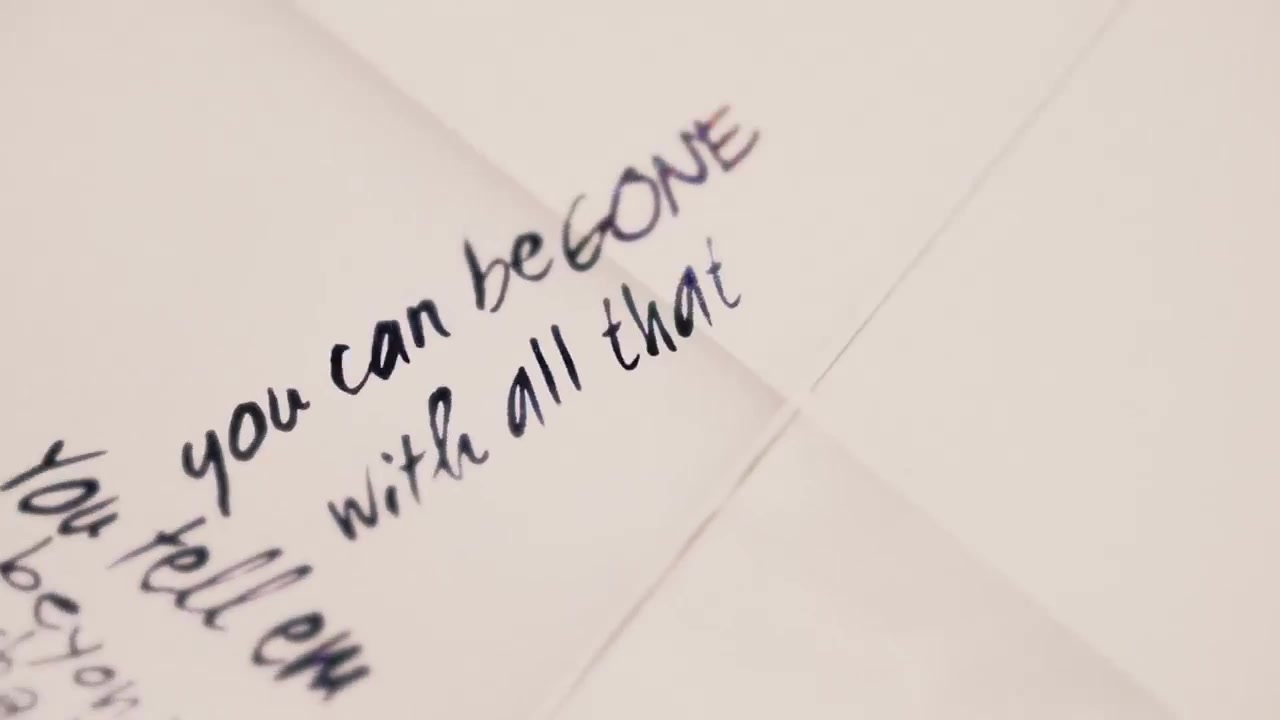 you can beGONE
with all that
You tell em
beyon